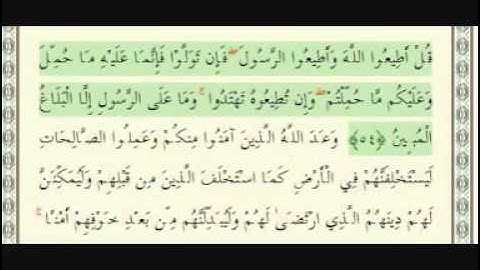 قُلْ أَطِيعُوا اللَّهَ وَأَطِيعُوا الرَّسُولَ ۖ فَإِن تَوَلَّوْا فَإِنَّمَا عَلَيْهِ مَا حُمِّلَ
وَعَلَيْكُم مَّا حُمِّلْتُمْ ۖ وَإِن تُطِيعُوهُ تَهْتَدُوا ۚ وَمَا عَلَى الرَّسُولِ إِلَّا الْبَلَاغُ
الْمُبِينُ ﴿٥٤﴾ وَعَدَ اللَّهُ الَّذِينَ آمَنُوا مِنكُمْ وَعَمِلُوا الصَّالِحَاتِ
لَيَسْتَخْلِفَنَّهُمْ فِي الْأَرْضِ كَمَا اسْتَخْلَفَ الَّذِينَ مِن قَبْلِهِمْ وَلَيُمَكِّنَنَّ
لَهُمْ دِينَهُمُ الَّذِي ارْتَضَىٰ لَهُمْ وَلَيُبَدِّلَنَّهُم مِّن بَعْدِ خَوْفِهِمْ أَمْنًا ۚ